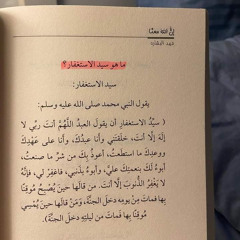 إنَّ الله معنا
ما هو سيد الاستغفار؟
سيد الاستغفار:
يقول النبي محمد صلى الله عليه وسلم:
( سيّدُ الاستغفارِ أن يقولَ العبدُ اللَّهمَّ أنتَ ربِّي لا
إلَهَ إلَّا أنتَ، خلَقتَني وأنا عبدُكَ، وأنا على عَهْدِكَ
ووعدِكَ ما استطعتُ، أعوذُ بِكَ من شرِّ ما صنعتُ،
أبوءُ لَكَ بنعمتِكَ عليَّ، وأبوءُ بذَنبي، فاغفِر لي، فإنَّهُ
لا يَغفِرُ الذُّنوبَ إلَّا أنتَ. من قالَها حينَ يُصبِحُ موقنًا
بِها فماتَ مِن يومِهِ دخلَ الجنَّةَ، وَمَن قالَها حينَ يُمسي
موقنًا بِها فماتَ من ليلتِهِ دخلَ الجنَّةَ).